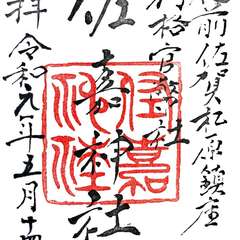 前佐賀松原鎮座
別格官幣社
佐嘉神社
拝 令和元年五月十四
佐嘉神社